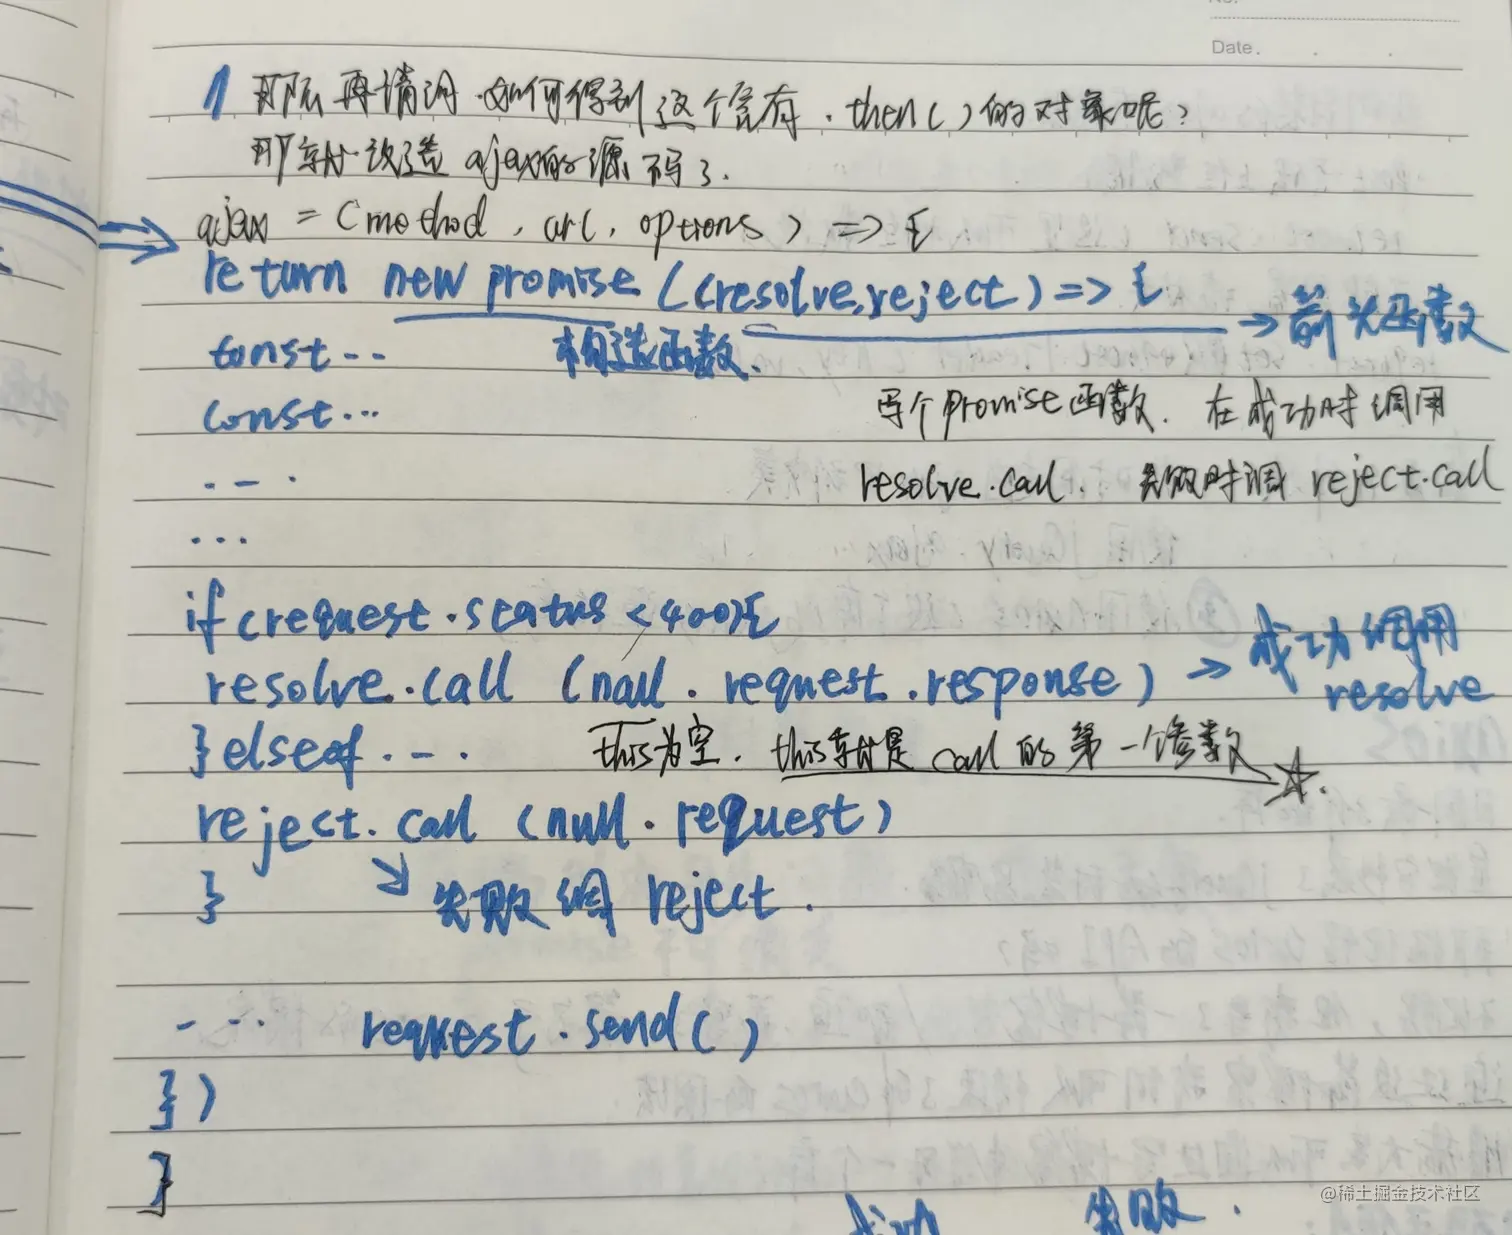 No.
Date.
1 那么再请问.如何得到这个含有.then()的对象呢?
那就改造ajax的源码了.
ajax = (method, url, options) => {
return new promise((resolve,reject) => {
→ 箭头函数
const... 构造函数.
const...
写个promise函数. 在成功时调用
...
resolve.call. 失败时调 reject.call
...
if(request.status <400){
resolve.call (null. request.response) → 成功调用
resolve
}else ...
this为空. this就是 call 的第一个参数 ☆.
reject. call (null. request)
}
失败调 reject.
... request.send()
})
}
失败.
@稀土掘金技术社区